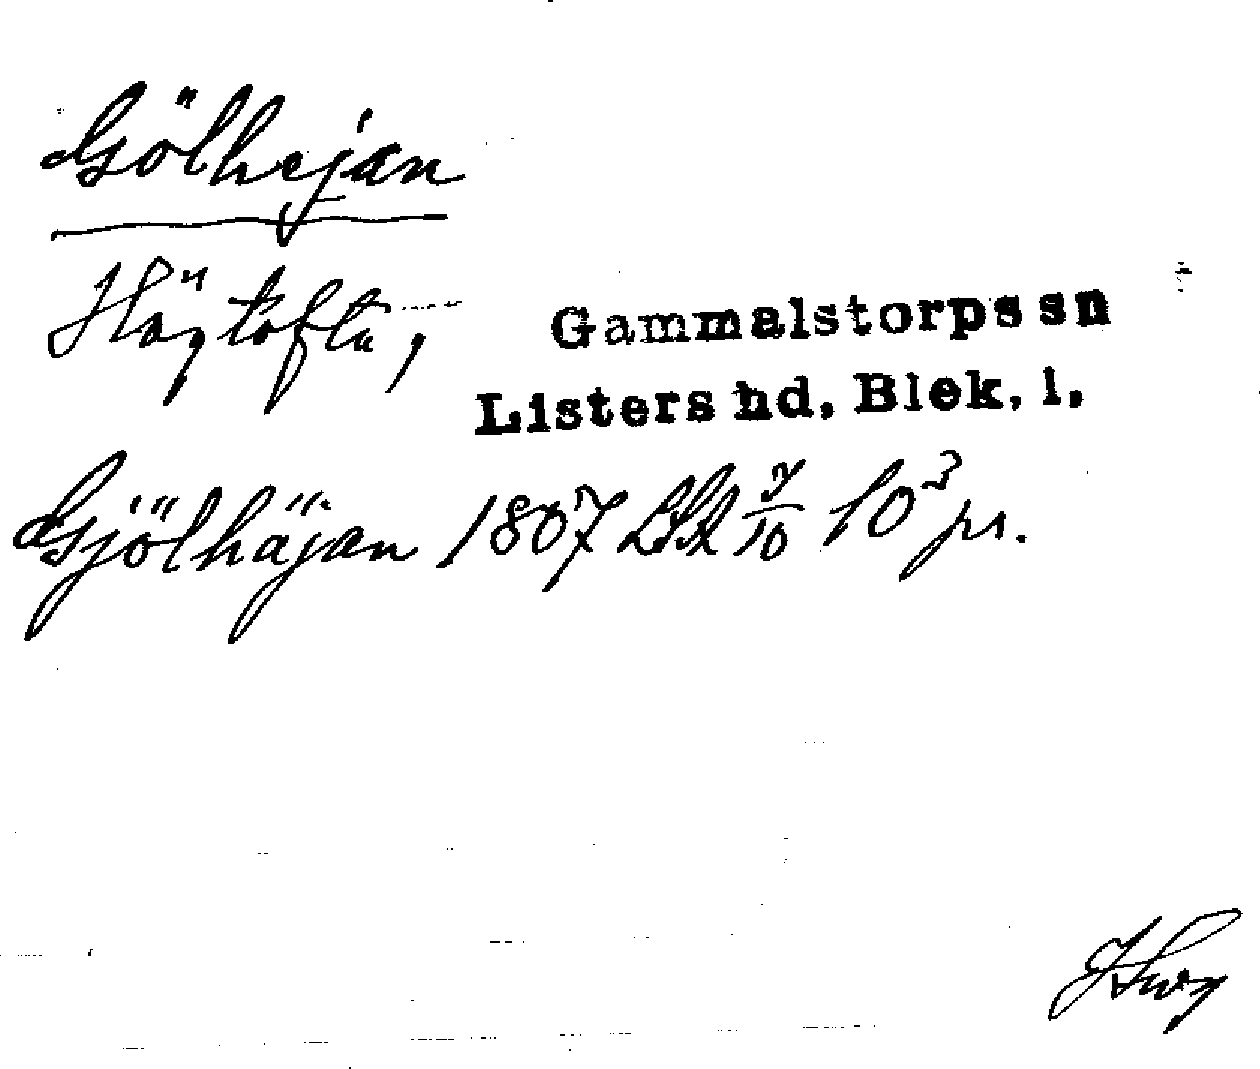 Gölhejan
Högtofta, Gammalstorps sn
Listers hd, Blek. l.
Gjölhäjan 1807 LSk 7/10 10³ pr.